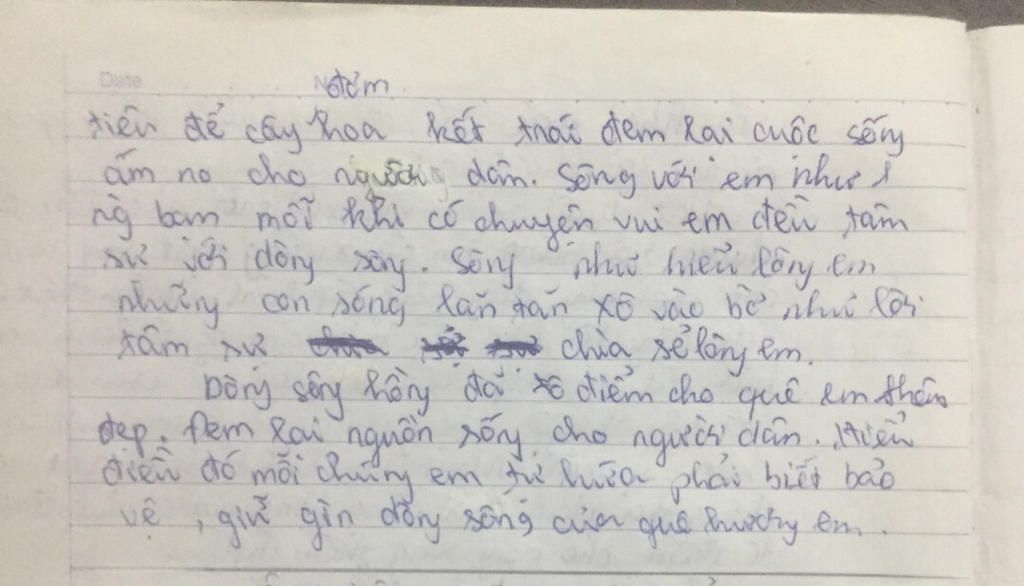 Date No
đơm
tiên để cây hoa kết trái đem lại cuộc sống
ấm no cho người dân. Sông với em như 1
ng bạn mỗi khi có chuyện vui em đều tâm
sự với dòng sông. Sông như hiểu lòng em
những con sóng lăn tăn xô vào bờ như lời
tâm sự chia sẻ lòng em.
Dòng sông hồng đã tô điểm cho quê em thêm
đẹp. Đem lại nguồn sống cho người dân. Hiểu
điều đó mỗi chúng em tự hứa phải biết bảo
vệ, giữ gìn dòng sông của quê hương em.